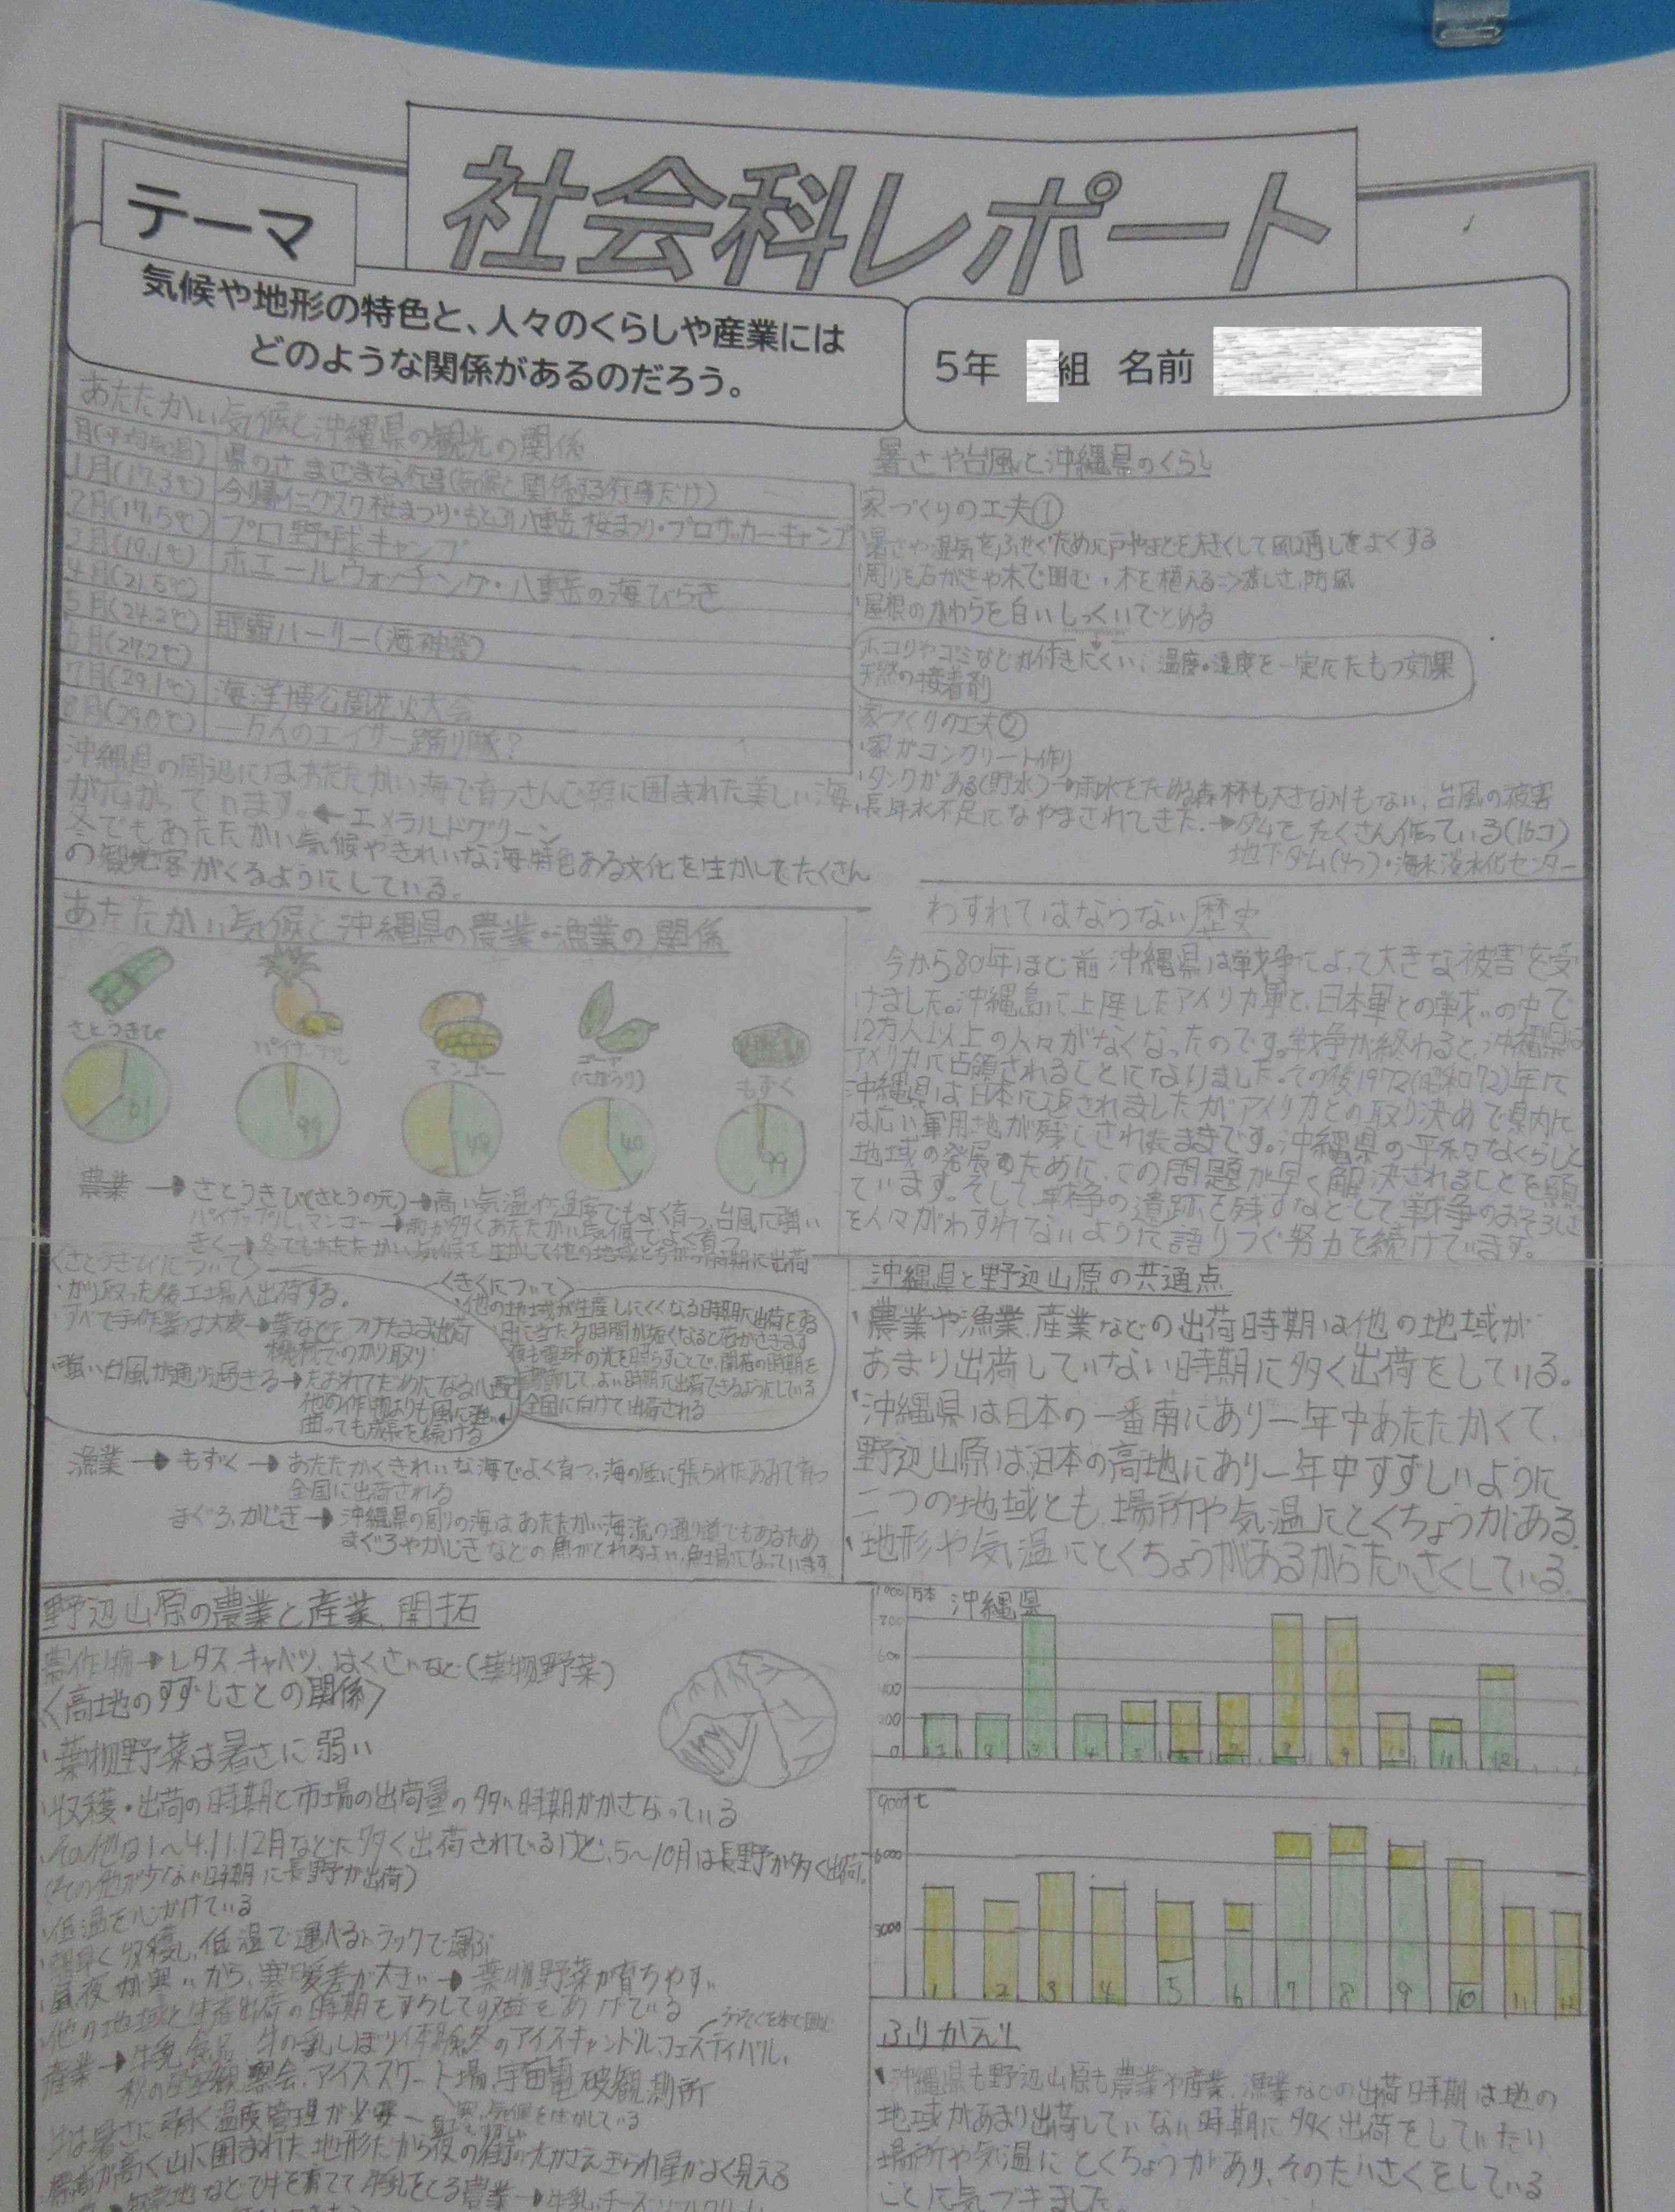 社会科レポート
テーマ
気候や地形の特色と、人々のくらしや産業には
どのような関係があるのだろう。
5年 組 名前
あたたかい気候と沖縄県の観光の関係
月(平均気温) 県のさまざまな行事(気候と関係する行事だけ)
1月(17.3℃) 今帰仁グスク桜まつり・もとぶ八重岳桜まつり・プロサッカーキャンプ
2月(17.5℃) プロ野球キャンプ
3月(19.1℃) ホエールウォッチング・八重岳の海びらき
4月(21.5℃)
5月(24.2℃) 那覇ハーリー(海神祭)
6月(27.2℃)
7月(29.1℃) 海洋博公園花火大会
8月(29.0℃) 一万人のエイサー踊り隊?
沖縄県の周辺にはあたたかい海で育つさんご礁に囲まれた美しい海
が広がっています。←エメラルドグリーン
冬でもあたたかい気候やきれいな海、特色ある文化を生かしてたくさん
の観光客がくるようにしている。
暑さや台風と沖縄県のくらし
家づくりの工夫①
・暑さや湿気をふせぐために戸やまどを大きくして風通しをよくする
・周りを石がきや木で囲む・木を植える⇒涼しさ、防風
・屋根のかわらを白いしっくいでとめる
ホコリやゴミなどが付きにくい、温度・湿度を一定にたもつ効果
天然の接着剤
家づくりの工夫②
・家がコンクリート作り
・タンクがある(貯水)→雨水をためる森林も大きな川もない、台風の被害
・長年水不足になやまされてきた→ダムをたくさん作っている(16コ)
地下ダム(4つ)・海水淡水化センター
あたたかい気候と沖縄県の農業・漁業の関係
さとうきび
パイナップル
マンゴー
ゴーヤ
(にがうり)
もずく
61
99
48
40
99
農業→さとうきび(さとうの元)→高い気温や湿度でもよく育つ、台風に強い
パイナップル、マンゴー→雨が多くあたたかい気候でよく育つ
きく→冬でもあたたかい気候を生かして他の地域とちがう時期に出荷
<さとうきびについて>
・かり取った後工場へ出荷する。
・すべて手作業は大変→葉などをつけたまま出荷
機械でのかり取り
・強い台風が通り過ぎる→たおれてだめになる心配
他の作物よりも風に強い
曲っても成長を続ける
<きくについて>
・他の地域が生産しにくくなる時期に出荷をする
・日に当たる時間が短くなると花がさきます
夜も電球の光を照らすことで、開花の時期を
して、よい時期に出荷できるようにしている
全国に向けて出荷される
漁業→もずく→あたたかくきれいな海でよく育つ、海の底に張られたあみで育つ
全国に出荷される
まぐろ、かじき→沖縄県の周りの海はあたたかい海流の通り道でもあるため
まぐろやかじきなどの魚がとれるよい漁場になっています。
わすれてはならない歴史
今から80年ほど前、沖縄県は戦争によって大きな被害を受
けました。沖縄島に上陸したアメリカ軍と、日本軍との戦いの中で
12万人以上の人々がなくなったのです。戦争が終わると、沖縄県は
アメリカに占領されることになりました。その後1972(昭和72)年に
沖縄県は日本に返されましたがアメリカとの取り決めで県内に
は広い軍用地が残されたままです。沖縄県の平和なくらしと
地域の発展のために、この問題が早く解決されることを願っ
ています。そして、戦争の遺跡を残すなどして戦争のおそろしさ
を人々がわすれないように語りつぐ努力を続けています。
沖縄県と野辺山原の共通点
・農業や漁業、産業などの出荷時期は他の地域が
あまり出荷していない時期に多く出荷をしている。
・沖縄県は日本の一番南にあり一年中あたたかくて、
野辺山原は、日本の高地にあり一年中すずしいように
二つの地域とも、場所や気温にとくちょうがある。
・地形や気温にとくちょうがあるからたいさくしている。
野辺山原の農業と産業、開拓
農作物→レタス、キャベツ、はくさいなど(葉物野菜)
<高地のすずしさとの関係>
・葉物野菜は暑さに弱い
・収穫・出荷の時期と市場の出荷量の多い時期がかさなっている
・その他は1～4.11.12月などに多く出荷されているけど、5～10月は長野が多く出荷。
(その他が少ない時期に長野が出荷)
・低温を心がけている
・朝早く収穫し、低温で運べるトラックで運ぶ
・昼夜が寒いから、寒暖差が大きい→葉物野菜が育ちやすい
・他の地域とは生産出荷の時期をずらして収益をあげている
産業→牛乳、食品、牛の乳しぼり体験、冬のアイスキャンドルフェスティバル、
秋の星空観察会、アイススケート場、宇宙電破観測所
牛は暑さに弱く温度管理が必要
寒い気候を生かしている
標高が高く山に囲まれた地形だから夜の街の光がさえぎられ星がよく見える
牧草地などで牛を育てて牛乳をとる農業→牛乳、チーズ、ソフトクリーム
万本 沖縄県
1000
700
600
400
200
0
1 2 3 4 5 6 7 8 9 10 11 12
9000 t
6000
3000
1 2 3 4 5 6 7 8 9 10 11 12
ふりかえり
・沖縄県も野辺山原も農業や産業、漁業などの出荷時期は他の
地域があまり出荷していない時期に多く出荷をしていたり
場所や気温にとくちょうがあり、そのたいさくをしている
ことに気づきました。